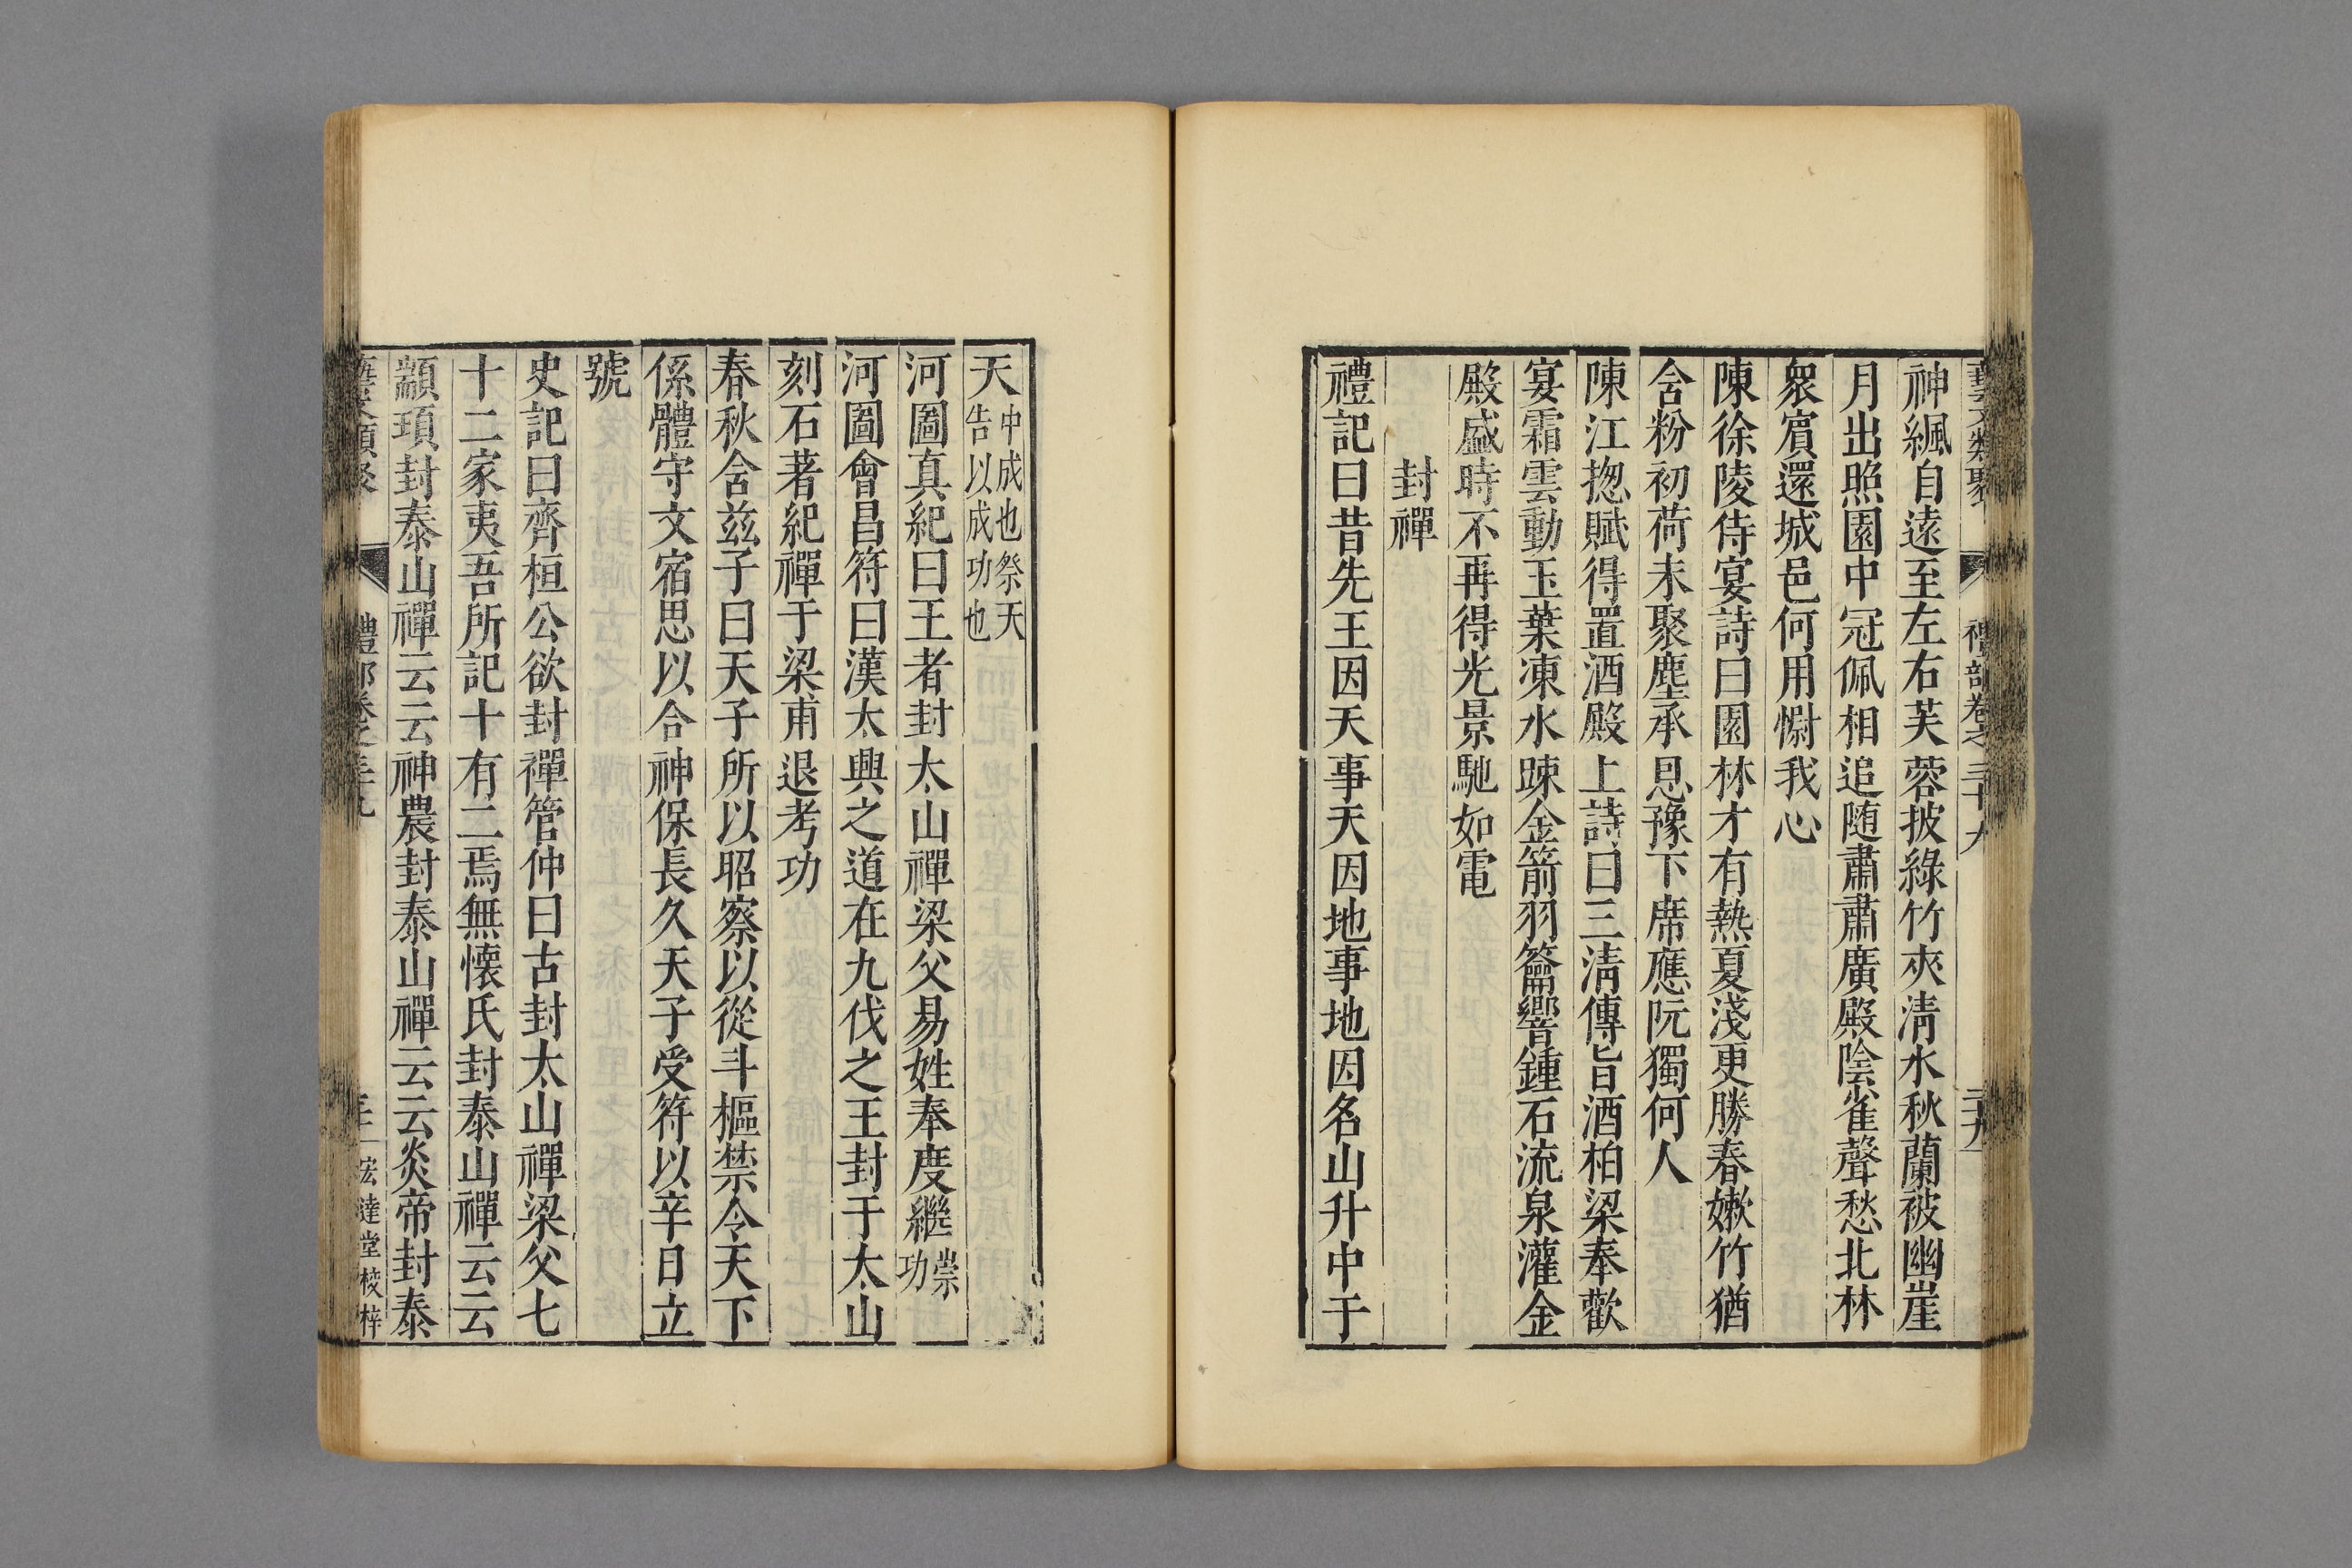 藝文類聚 禮部卷之三十九 二十九
神飇自遠至左右芙蓉披綠竹夾清水秋蘭被幽崖
月出照園中冠佩相追随肅肅廣殿陰雀聲愁北林
衆賔還城邑何用慰我心
陳徐陵侍宴詩曰園林才有熱夏淺更勝春嫰竹猶
含粉初荷未聚塵承恩豫下席應阮獨何人
陳江揔賦得置酒殿上詩曰三清傳旨酒柏梁奉歡
宴霜雲動玉葉凍水踈金箭羽籥響鍾石流泉灌金
殿盛時不再得光景馳如電
封禪
禮記曰昔先王因天事天因地事地因名山升中于
天中成也祭天告以成功也
河圖真紀曰王者封太山禪梁父易姓奉度繼崇功
河圖會昌符曰漢太興之道在九伐之王封于太山
刻石著紀禪于梁甫退考功
春秋含兹子曰天子所以昭察以從斗樞禁令天下
係體守文宿思以合神保長久天子受符以辛日立
號
史記曰齊桓公欲封禪管仲曰古封太山禪梁父七
十二家夷吾所記十有二焉無懷氏封泰山禪云云
顓頊封泰山禪云云神農封泰山禪云云炎帝封泰
藝文類聚 禮部卷之三十九 宏達堂校梓